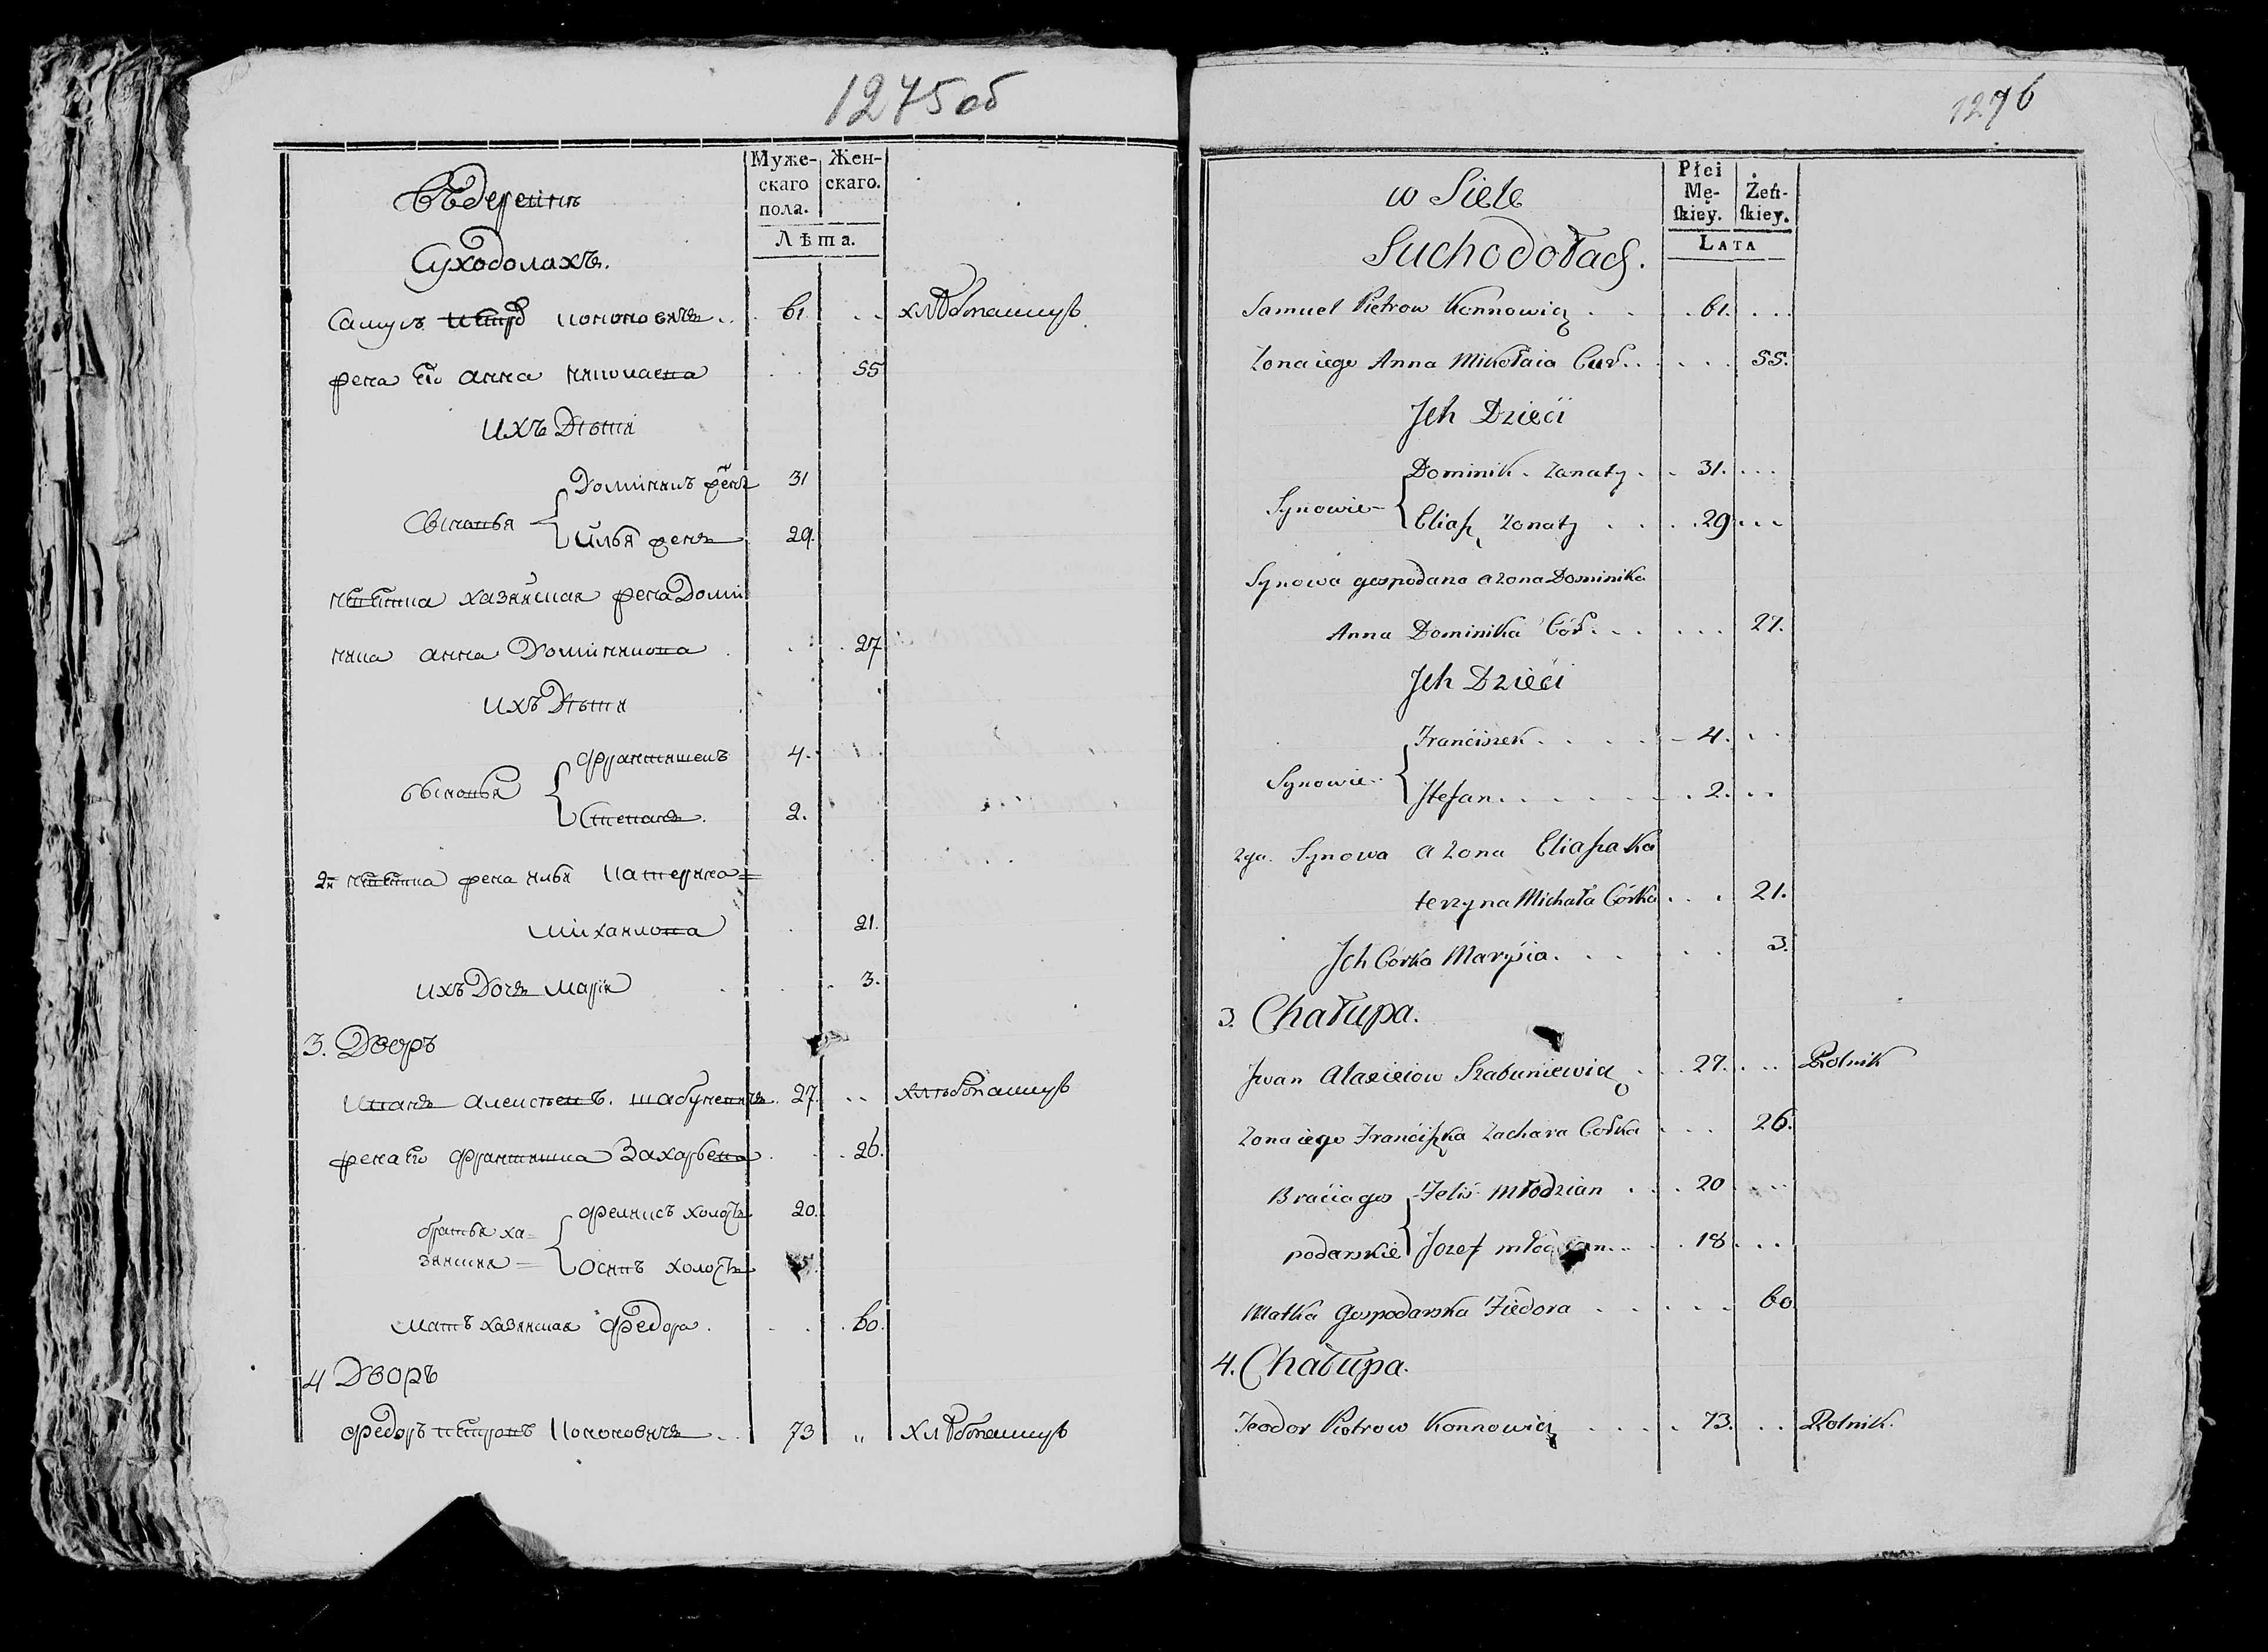 1275 об
Муже- Жен-
скаго скаго.
пола.
Лѣта.
Въ деревнѣ
Суходолахъ.
Самуль Петров Кононовичъ . . 61. . . хлѣбопашецъ
жена его Анна Николаева . . 55
ихъ дѣти
Доминикъ женатъ 31
Сыновья
Илья женатъ 29.
невѣстка хазяйская жена Доми
ника Анна Доминикова . . . 27
ихъ дѣти
Францишекъ 4.
сыновья
Степанъ. 2.
2я невѣстка жена Ильи Катерина =
Михайлова . 21.
ихъ дочь Марія . . . 3.
3. Дворъ
Иванъ Алексѣевъ Шабуневичъ. 27. . . хлѣбопашецъ
жена его Францишка Захарьева . . . 26.
Феликсъ холостъ 20.
братья ха=
зяйскія =
Осипъ холостъ
мать хазяйская Федора . . . . 60.
4 Дворъ
Федоръ Петровъ Кононовичъ . . 73 „ хлѣбопашецъ
1276
Płci
Mę- Żeń-
ſkiey. ſkiey.
LATA
w Siele
Suchodołach.
Samuel Pietrow Konnowicz . . . 61. . . .
Żona iego Anna Mikołaia Cur. . . . . . 55.
Jch Dzieci
Dominik . żonaty . . 31. . . .
Synowie
Eliasz żonaty . . . . 29 . . .
Synowa gospodarza a żona Dominika
Anna Dominika Cór. . . . . . . 27.
Jch Dzieci
Franciszek . . . . . 4. . .
Synowie
Stefan . . . . . . . 2. . .
2ga. Synowa a żona Eliasza Ka
terzyna Michała Córka . . . 21.
Jch Corka Maryia. . . . . . 3.
3. Chałupa.
Jwan Alaxieiow Szabuniewicz . . . 27. . . . Rolnik
Żona iego Franciszka Zachara Corka . . . 26.
Bracia gos Felix Młodzian . . . 20 . . .
podarskie Jozef młodzian . . . . 18 . . .
Matka Gospodarska Fiedora . . . . . 60
4. Chałupa.
Teodor Piotrow Konnowicz . . . . . 73. . . Rolnik.